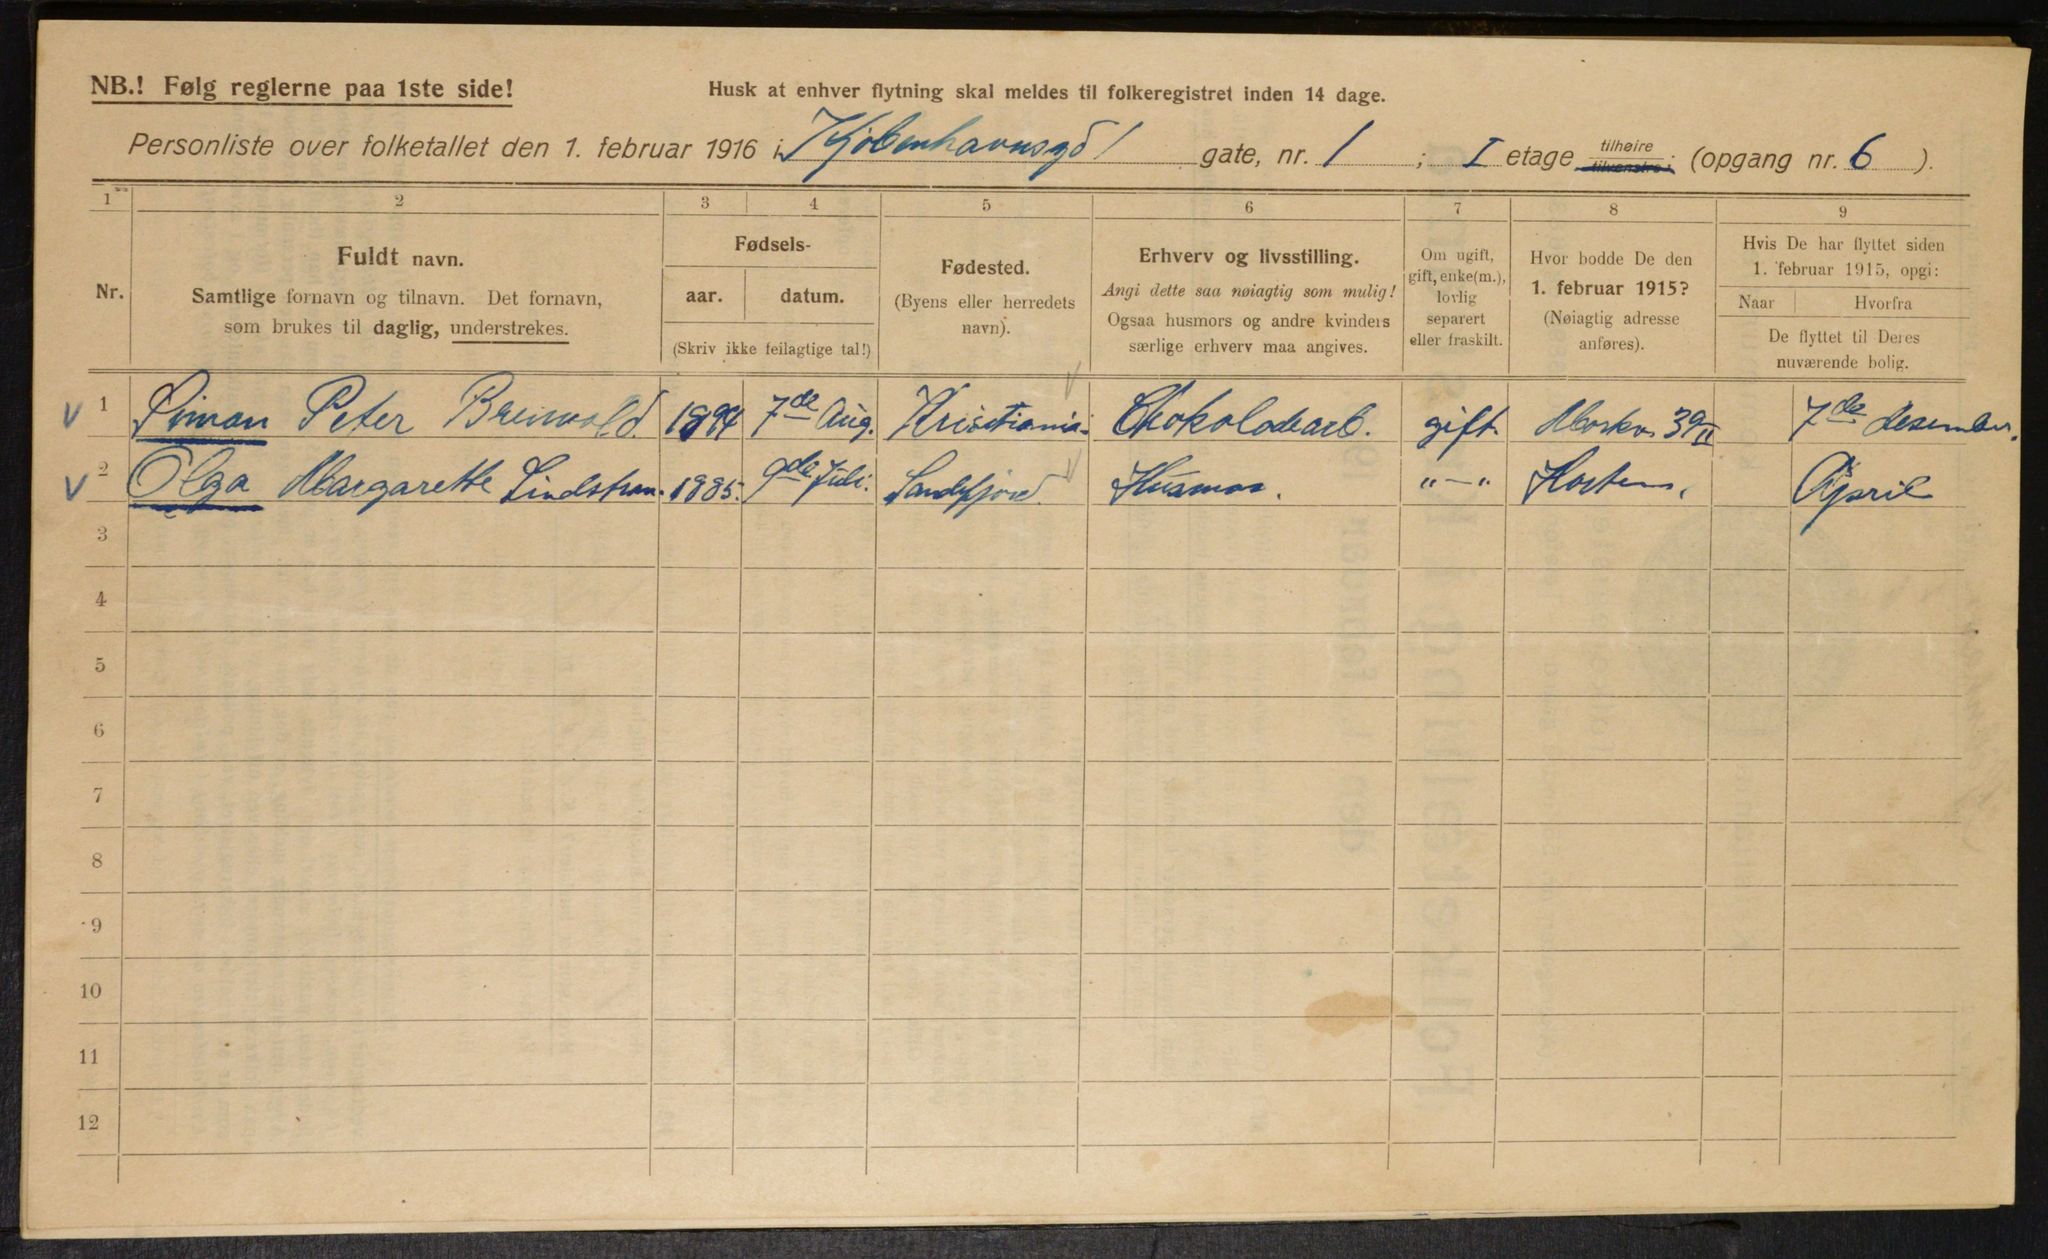 NB.! Følg reglerne paa 1ste side!
Husk at enhver flytning skal meldes til folkeregistret inden 14 dage.
Personliste over folketallet den 1. februar 1916 i Kjøbenhavnsgd 1 gate, nr. 1 ; I etage tilhøire tilvenstre; (opgang nr. 6 ).
1 2 3 4 5 6 7 8 9
Nr.
Fuldt navn.
Samtlige fornavn og tilnavn. Det fornavn,
som brukes til daglig, understrekes.
Fødsels-
aar. datum.
(Skriv ikke feilagtige tal!)
Fødested.
(Byens eller herredets
navn).
Erhverv og livsstilling.
Angi dette saa nøiagtig som mulig!
Ogsaa husmors og andre kvinders
særlige erhverv maa angives.
Om ugift,
gift, enke(m.),
lovlig
separert
eller fraskilt.
Hvor bodde De den
1. februar 1915?
(Nøiagtig adresse
anføres).
Hvis De har flyttet siden
1. februar 1915, opgi:
Naar Hvorfra
De flyttet til Deres
nuværende bolig.
1 Simon Peter 7de Aug. Kristiania Chokoladearb. gift. 39 II 7de desember.
2 Olga Margarethe 1885. 9de Juli. Sandefjord Husmor. "-" Horten. April
3
4
5
6
7
8
9
10
11
12